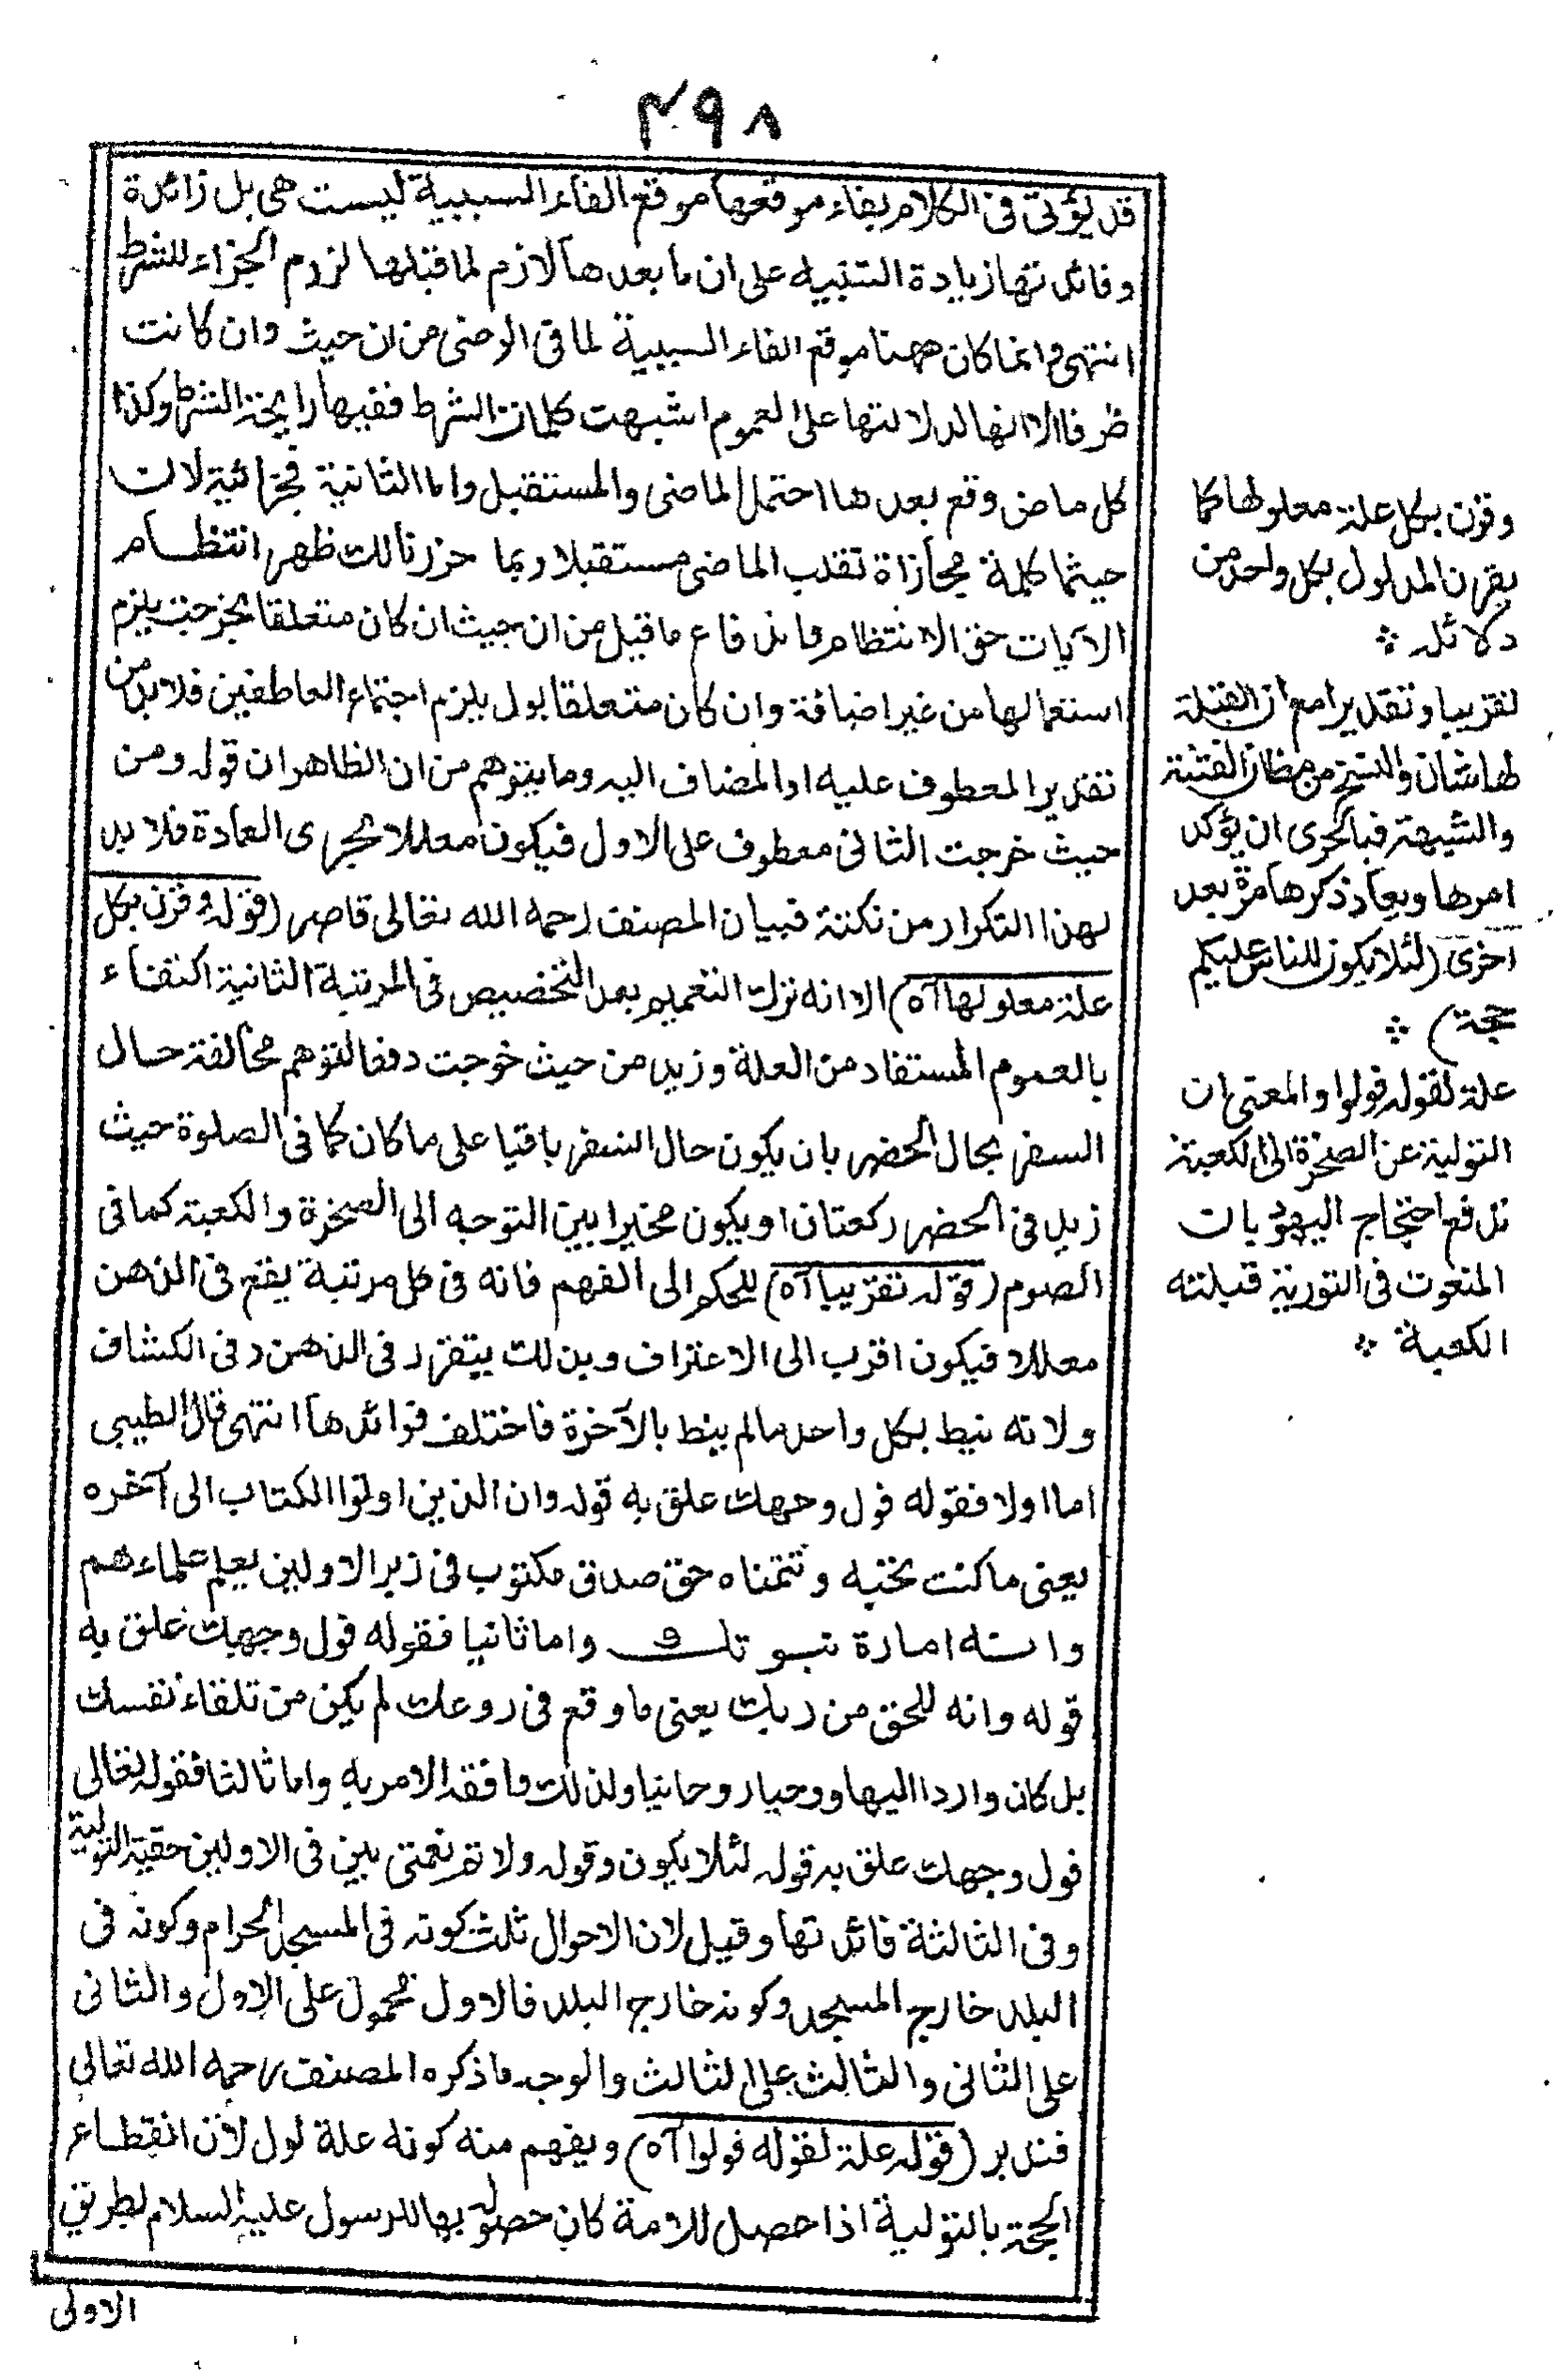 ٤٩٨
قد يؤتى فى الكلام بفاء موقعها موقع الفاء السببية ليست هى بل زائدة
وفائدتها زيادة التنبيه على ان ما بعدها لازم لما قبلها لزوم الجزاء للشرط
انتهى وانما كان ههنا موقع الفاء السببية لما فى الرضى من ان حيث وان كانت
ظرفا الا انها لدلالتها على العموم اشبهت كلمات الشرط ففيها رايحة الشرط وكذا
كل ماض وقع بعدها احتمل الماضى والمستقبل واما الثانية فجزائية لان
حيثما كلمة مجازاة تقلب الماضى مستقبلا وبما حررنا لك ظهر انتظام
الآيات حق الانتظام واندفاع ما قيل من ان حيث ان كان متعلقا بخرجت يلزم
استعمالها من غير اضافة وان كان متعلقا بول يلزم اجتماع العاطفين فلابد من
تقدير المعطوف عليه او المضاف اليه وما يتوهم من ان الظاهر ان قوله ومن
حيث خرجت الثانى معطوف على الاول فيكون معللا بجرى العادة فلا بد
لهذا التكرار من نكتة فبيان المصنف رحمه الله تعالى قاصر (قوله وقرن بكل
علة معلولها آه) الا انه ترك التعميم بعد التخصيص فى المرتبة الثانية اكتفاء
بالعموم المستفاد من العلة وزيد من حيث خرجت دفعا لتوهم مخالفة حال
السفر بحال الحضر بان يكون حال السفر باقيا على ما كان كما فى الصلوة حيث
زيد فى الحضر ركعتان او يكون مخيرا بين التوجه الى الصخرة والكعبة كما فى
الصوم (قوله تقريبا آه) للحكم الى الفهم فانه فى كل مرتبة يقع فى الذهن
معللا فيكون اقرب الى الاعتراف وبذلك يتقرر فى الذهن وفى الكشاف
ولانه نيط بكل واحد ما لم ينط بالآخرة فاختلف فوائدها انتهى قال الطيبى
اما اولا فقوله فول وجهك علق به قوله وان الذين اوتوا الكتاب الى آخره
يعنى ما كنت تحبه وتتمناه حق صدق مكتوب فى زبر الاولين يعلم علماءهم
وانه امارة نبوتك و واما ثانيا فقوله فول وجهك علق به
قوله وانه للحق من ربك يعنى ما وقع فى روعك لم يكن من تلقاء نفسك
بل كان واردا الهيا ووحيا روحانيا ولذلك وافقه الامر به واما ثالثا فقوله تعالى
فول وجهك علق به قوله لئلا يكون وقوله ولاتم نعمتى بين فى الاولين حقية التولية
وفى الثالثة فائدتها وقيل لان الاحوال ثلث كونه فى المسجد الحرام وكونه فى
البلد خارج المسجد وكونه خارج البلد فالاول محمول على الاول والثانى
على الثانى والثالث على الثالث والوجه ما ذكره المصنف رحمه الله تعالى
فتدبر (قوله علة لقوله فولوا آه) ويفهم منه كونه علة لول لان انقطاع
الحجة بالتولية اذا حصل للامة كان حصوله بها للرسول عليه السلام بطريق
الاولى
وقرن بكل علة معلولها كما
يقرن المدلول بكل واحد من
دلائله
تقريبا وتقديرا مع ان القبلة
لها شان والنسخ من مظان الفتنة
والشبهة فبالحرى ان يؤكد
امرها ويعاد ذكرها مرة بعد
اخرى (لئلا يكون للناس عليكم
حجة)
علة لقوله فولوا والمعنى ان
التولية عن الصخرة الى الكعبة
تدفع احتجاج اليهود بان
المنعوت فى التورية قبلته
الكعبة